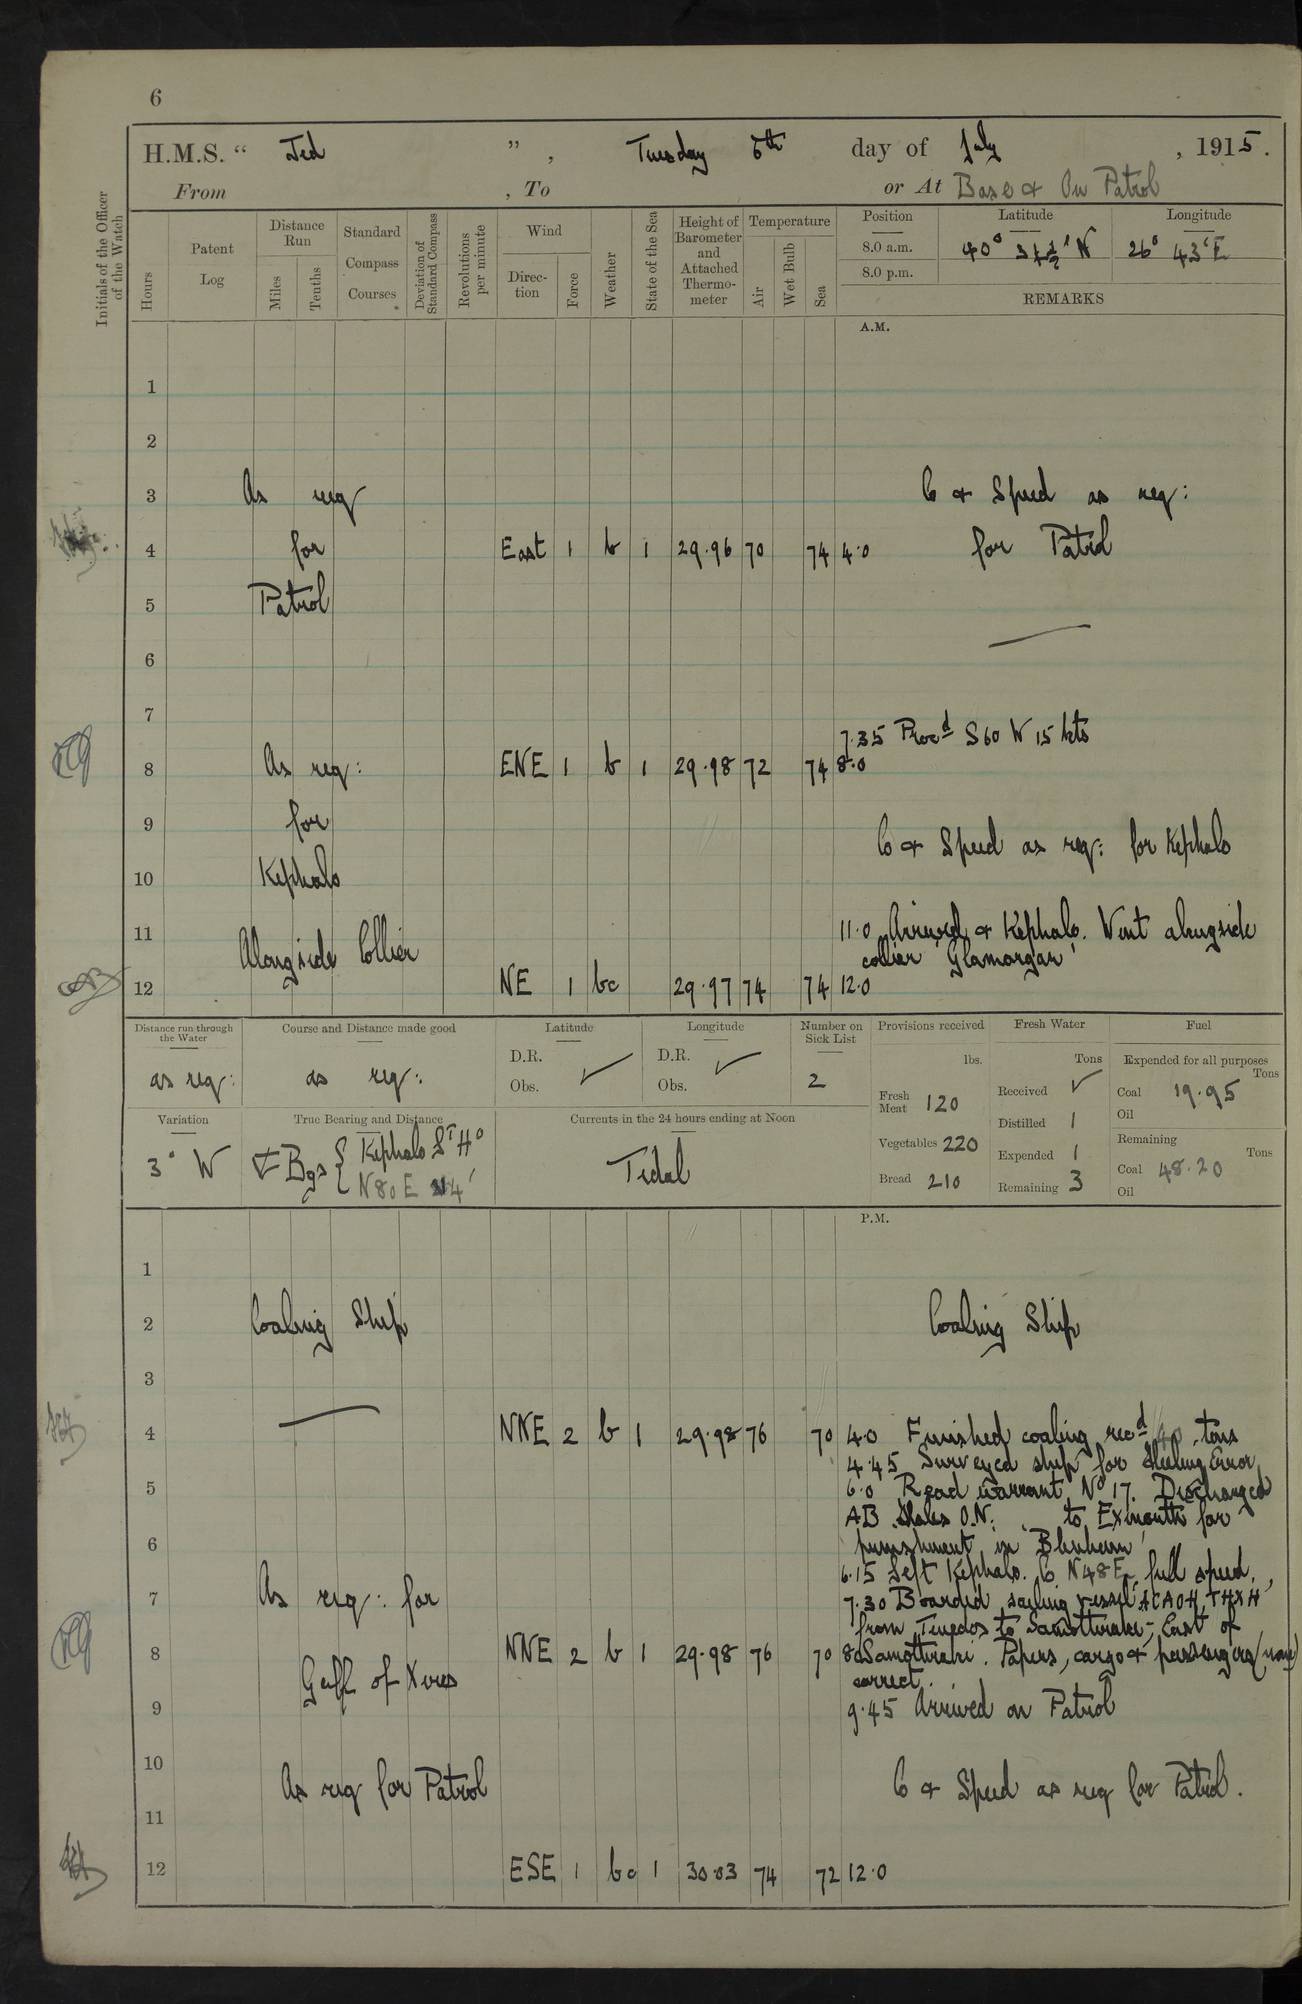 6
H.M.S. “ Jed ” , Tuesday 6th day of July , 1915.
From , To or At Base & On Patrol
Initials of the Officer of the Watch
Hours
Patent Log
Distance Run
Miles
Tenths
Standard Compass Courses
Deviation of Standard Compass
Revolutions per minute
Wind
Direction
Force
Weather
State of the Sea
Height of Barometer and Attached Thermometer
Temperature
Air
Wet Bulb
Sea
Position Latitude Longitude
8.0 a.m. 40° N 26° 43' E
8.0 p.m.
REMARKS
A.M.
1
2
3 As req C & Speed as req:
4 for East 1 b 1 29.96 70 74 4.0 for Patrol
5 Patrol
6
7
7.35 Procd S60 W 15 kts
8 As req: ENE 1 b 1 29.98 72 74 8.0
9 for C & Speed as req: for Kephalo
10 Kephalo
11 11.0 Arrived & Kephalo. Went alongside
Alongside Collier collier 'Glamorgan'
12 NE 1 bc 29.97 74 74 12.0
Distance run through the Water
as req:
Course and Distance made good
as req:
Latitude
D.R.
Obs.
Longitude
D.R.
Obs.
Number on Sick List
2
Provisions received
lbs.
Fresh Meat 120
Vegetables 220
Bread 210
Fresh Water
Tons
Received
Distilled 1
Expended 1
Remaining 3
Fuel
Expended for all purposes
Tons
Coal 19.95
Oil
Remaining
Tons
Coal 48.20
Oil
Variation
3° W
True Bearing and Distance
Bgs { Kephalo Lt Ho
N80E 4'
Currents in the 24 hours ending at Noon
Tidal
P.M.
1
2 Coaling Ship Coaling Ship
3
4 NNE 2 b 1 29.98 76 70 4.0 Finished coaling recd tons
4.45 Surveyed ship for Heeling Error
5 6.0 Read warrant No 17. Discharged
AB O.N. to Exmouth for
6 punishment in Blenheim'
6.15 Left Kephalo. C N48E, full speed.
7 As req: for 7.30 Boarded sailing vessel 'ACAOH, THXH'
from Tenedos to Samothraki, East of
8 NNE 2 b 1 29.98 76 70 8.0 Samothraki. Papers, cargo & passengers (none)
Gulf of Xeros correct.
9 9.45 Arrived on Patrol
10
As req for Patrol C & Speed as req for Patrol.
11
12 ESE 1 bc 1 30.03 74 72 12.0